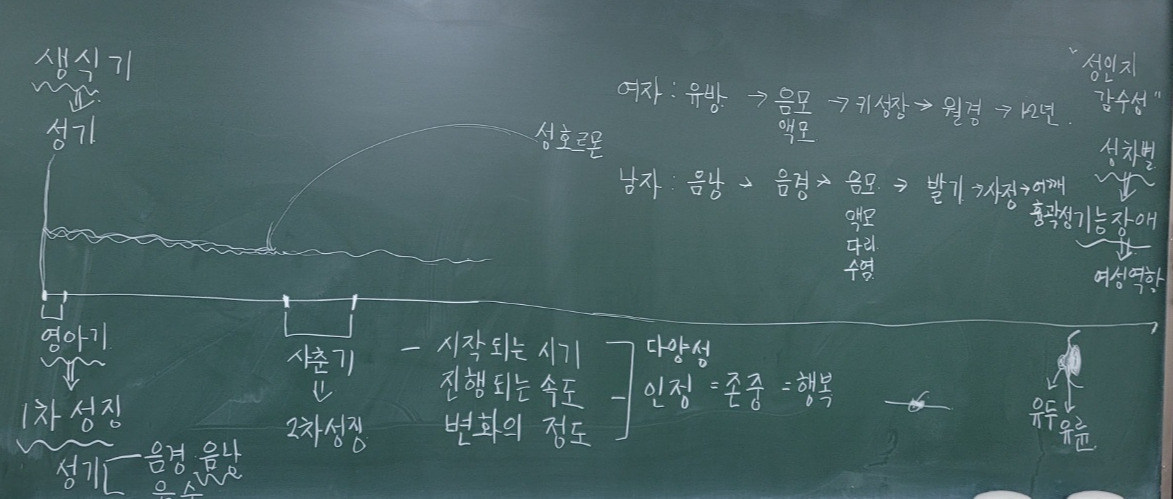 생식기
⇓
성기
성호르몬
여자 : 유방 → 음모 → 키성장 → 월경 → 1~2년.
액모
남자 : 음낭 → 음경 → 음모 → 발기 → 사정 → 어깨
액모
다리
수염
"성인지
감수성"
성차별
⇓
기능장애
⇓
여성역할
영아기
⇓
1차 성징
성기
음경 음낭
사춘기
⇓
2차성징
- 시작되는 시기
진행되는 속도
변화의 정도
다양성
인정 = 존중 = 행복
유두
유륜